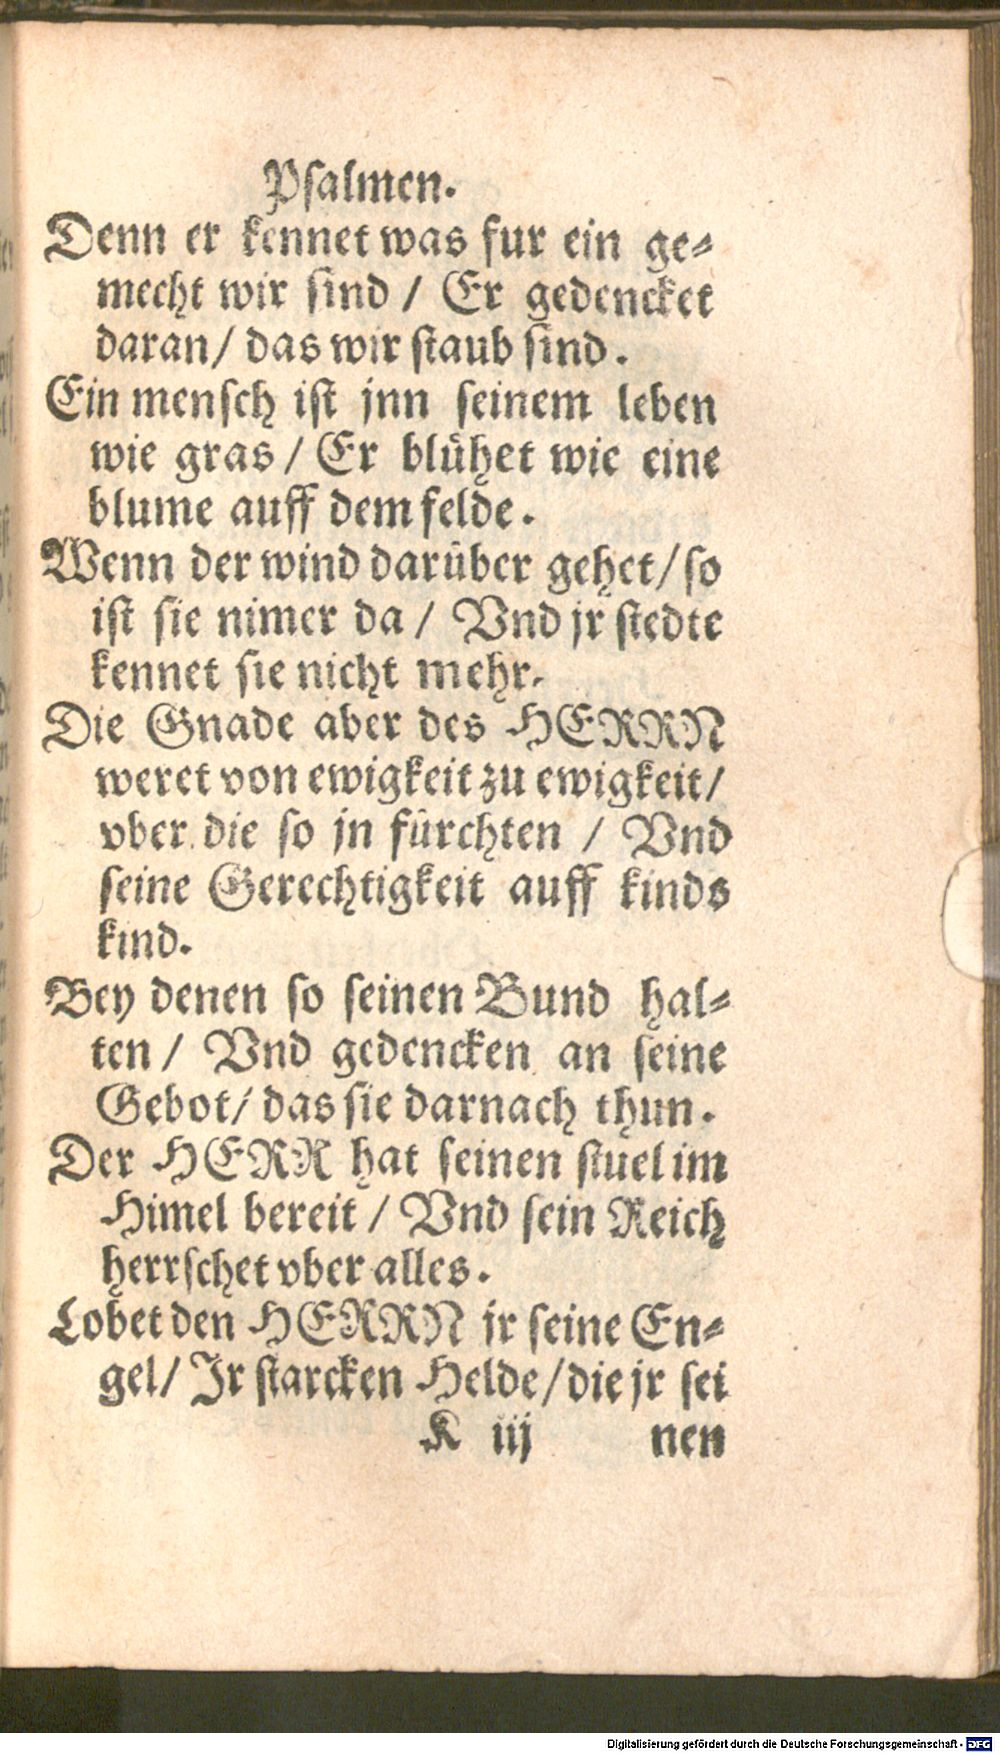 Psalmen.
Denn er kennet was fur ein ge⸗
mecht wir sind / Er gedencket
daran/ das wir staub sind.
Ein mensch ist jnn seinem leben
wie gras / Er blühet wie eine
blume auff dem felde.
Wenn der wind darüber gehet/ so
ist sie nimer da / Vnd jr stedte
kennet sie nicht mehr.
Die Gnade aber des HERRN
weret von ewigkeit zu ewigkeit/
vber die so jn fürchten / Vnd
seine Gerechtigkeit auff kinds
kind.
Bey denen so seinen Bund hal⸗
ten / Vnd gedencken an seine
Gebot/ das sie darnach thun.
Der HERR hat seinen stuel im
Himel bereit / Vnd sein Reich
herrschet vber alles.
Lobet den HERRN jr seine En⸗
gel/ Jr starcken Helde/ die jr sei
K iij nen
Digitalisierung gefördert durch die Deutsche Forschungsgemeinschaft - DFG